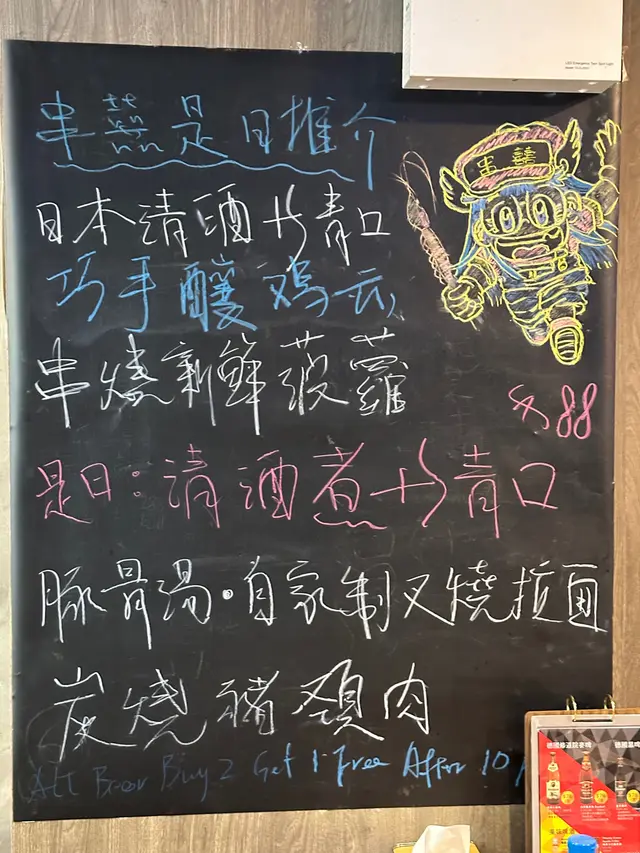 串囍是日推介
串囍
日本清酒青口
巧手釀鸡
串燒新鮮菠蘿
$88
是日:清酒煮青口
豚骨湯·自家制叉燒拉面
炭燒豬頸肉
All Beer Buy 2 Get 1 Free After 10